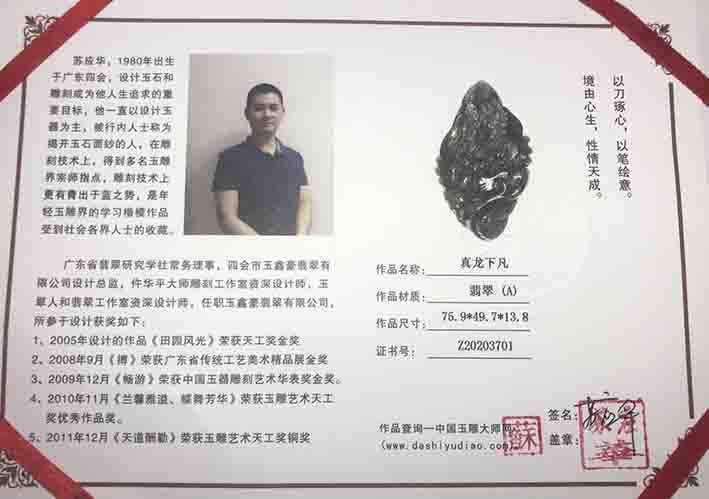 苏应华，1980年出生
于广东四会，设计玉石和
雕刻成为他人生追求的重
要目标，他一直以设计玉
器为主，被行内人士称为
揭开玉石面纱的人，在雕
刻技术上，得到多名玉雕
界宗师指点，雕刻技术上
更有青出于蓝之势，是年
轻玉雕界的学习楷模作品
受到社会各界人士的收藏。
广东省翡翠研究学社常务理事，四会市玉鑫豪翡翠有
限公司设计总监，仵华平大师雕刻工作室资深设计师，玉
翠人和翡翠工作室资深设计师，任职玉鑫豪翡翠有限公司，
所参于设计获奖如下：
1、2005年设计的作品《田园风光》荣获天工奖金奖
2、2008年9月《搏》荣获广东省传统工艺美术精品展金奖
3、2009年12月《畅游》荣获中国玉器雕刻艺术华表奖金奖。
4、2010年11月《兰馨雅溢、蝶舞芳华》荣获玉雕艺术天工
奖优秀作品奖。
5、2011年12月《天道酬勤》荣获玉雕艺术天工奖铜奖
以刀琢心，以笔绘意。
境由心生，性情天成。
作品名称：真龙下凡
作品材质：翡翠 (A)
作品尺寸：75.9*49.7*13.8
证书号：Z20203701
作品查询一中国玉雕大师网
(www.dashiyudiao.com)
蘇
签名：
盖章：